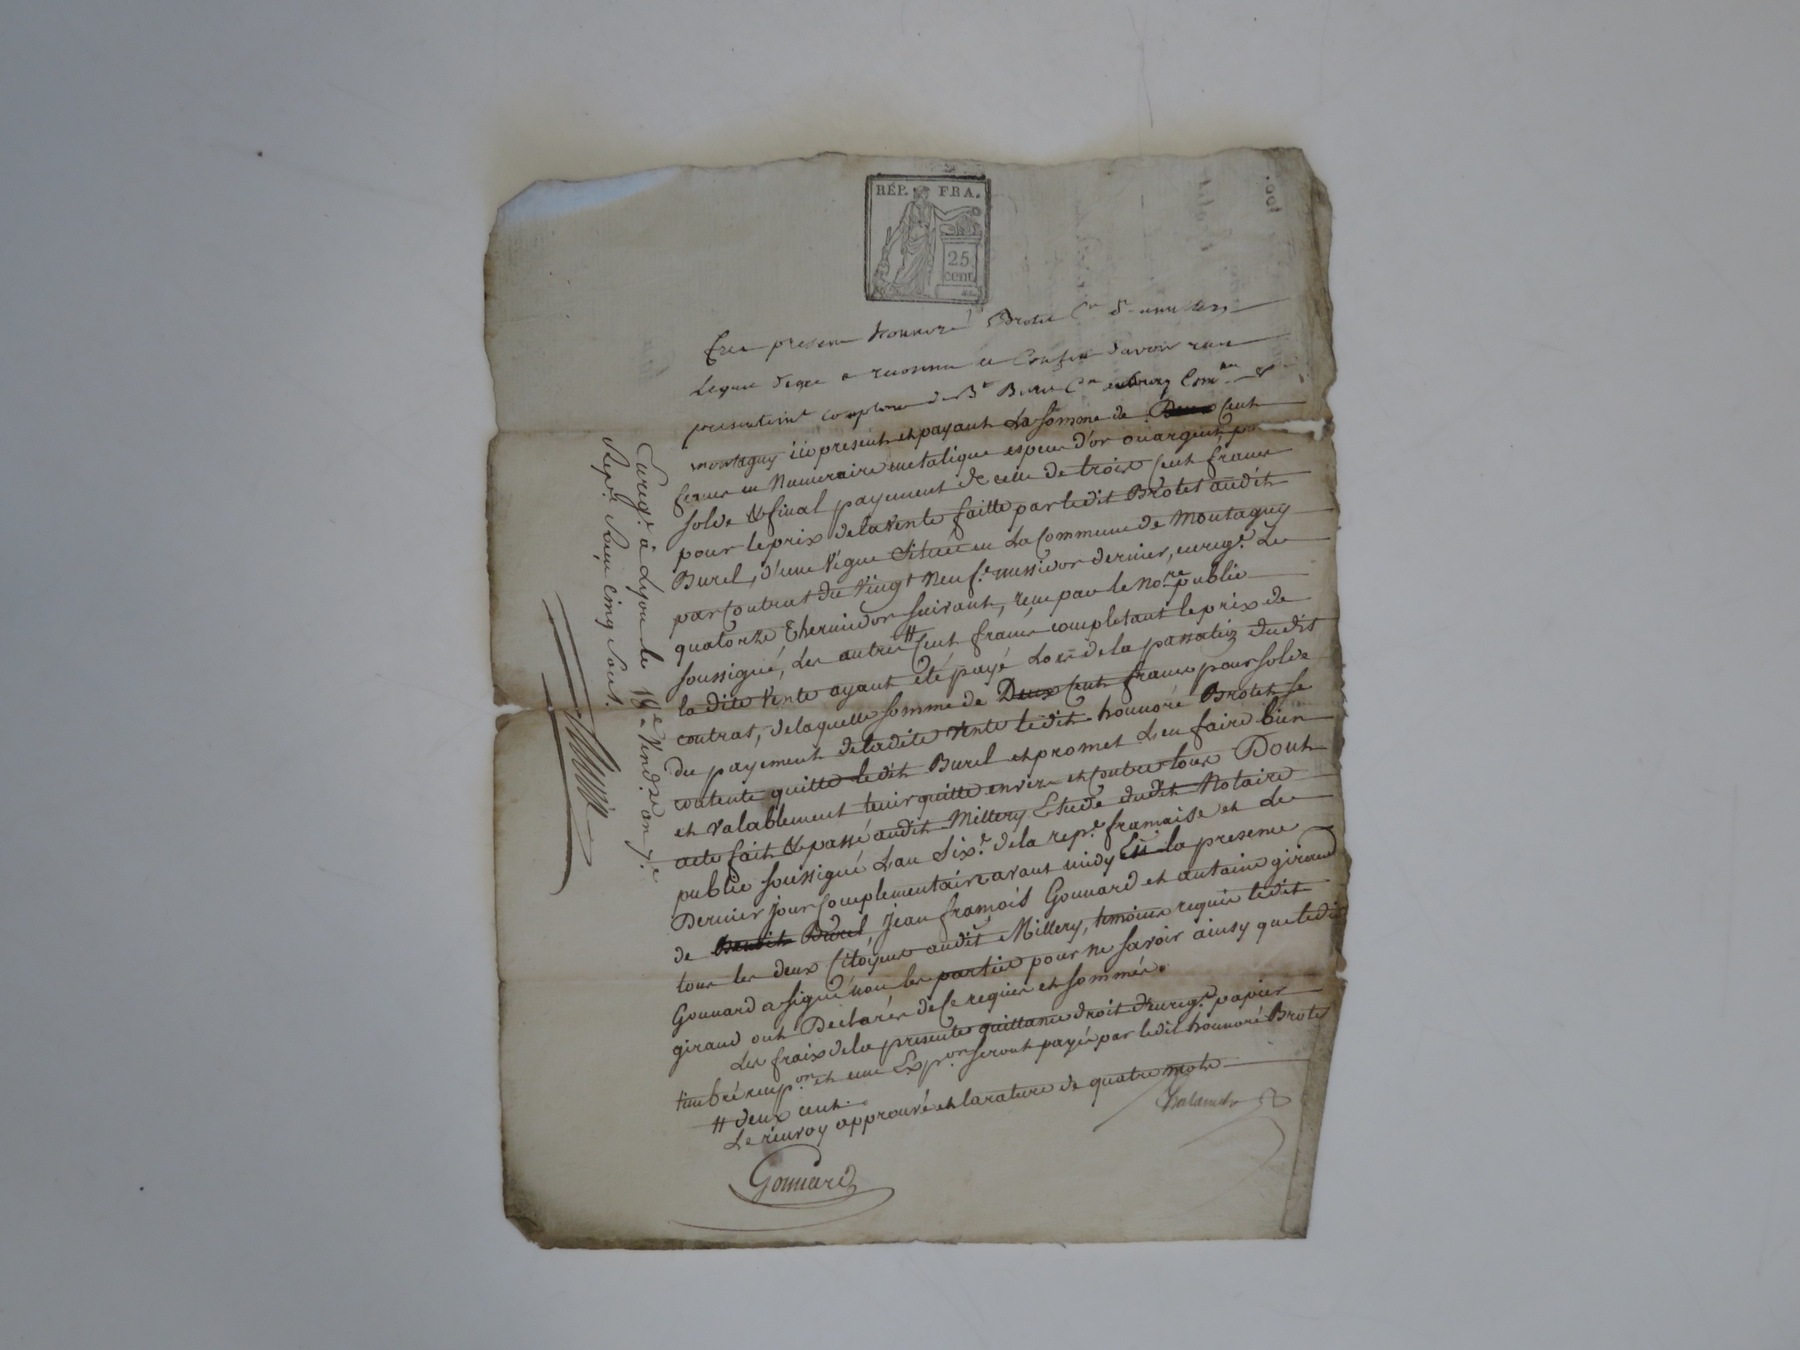 RÉP. FRA.
25
cent
Fut présent honnoré Brotet Cen de
Lequel de gré a reconnu et Confessé d'avoir reçu
présentemt comptant de Bt Burel Cen Comne de
montaguy icy présent et payant La Somme de Cent
francs en Numeraire metalique espece d'or ou argent, pour
solde & final payement de celle de trois Cent francs
pour le prix de la vente faitte par ledit Brotet audit
Burel, d'une Vigne Située en La Commune de Montaguy
par Contrat du vingt neuf.e messidor dernier, enregé. Le
quatorze Thermidor suivant, reçu par le Nore public
soussigné, Les autres # Cent francs completant le prix de
la dite vente ayant été payé Lors de la passation dudit
contrat, de laquelle somme de Deux Cent francs pour solde
du payement de ladite vente ledit honnoré Brotet se
contente quitte ledit Burel et promet L'en faire bien
et valablement tenir quitte envers et Contre tous Dont
acte fait & passé audit Millery Etude dudit Notaire
public soussigné L'an Six.e de la repe. francaise et Le
Dernier jour Complementaire avant midy En la presence
de Benoit Burel, Jean françois Gonnard et antoine giraud
tous les deux Citoyens audit Millery, temoins requis ledit
Gonnard a signé non les parties pour ne savoir ainsy que ledit
giraud ont Déclarés de ce requis et sommés.
Les fraix de la presente quittance droit d'enregt. papier
timbré recepon et une Expon seront payés par ledit honnoré Brotet
# deux cent.
Le renvoy approuvé et la rature de quatre mots
Gonnard
Enregé. à Lyon le Vendre an 7.e
Reçu. cinq sous